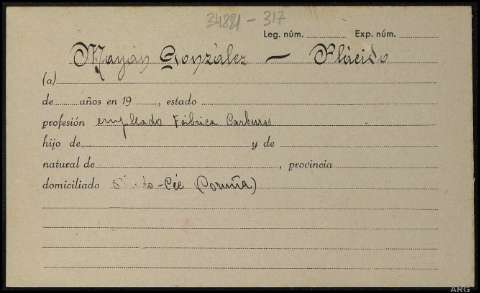 34881-317
Leg. núm. Exp. núm.
Mayán González — Plácido
(a)
de años en 19 , estado
profesión empleado Fábrica Carburos
hijo de y de
natural de , provincia
domiciliado -Cée (Coruña)
ARG